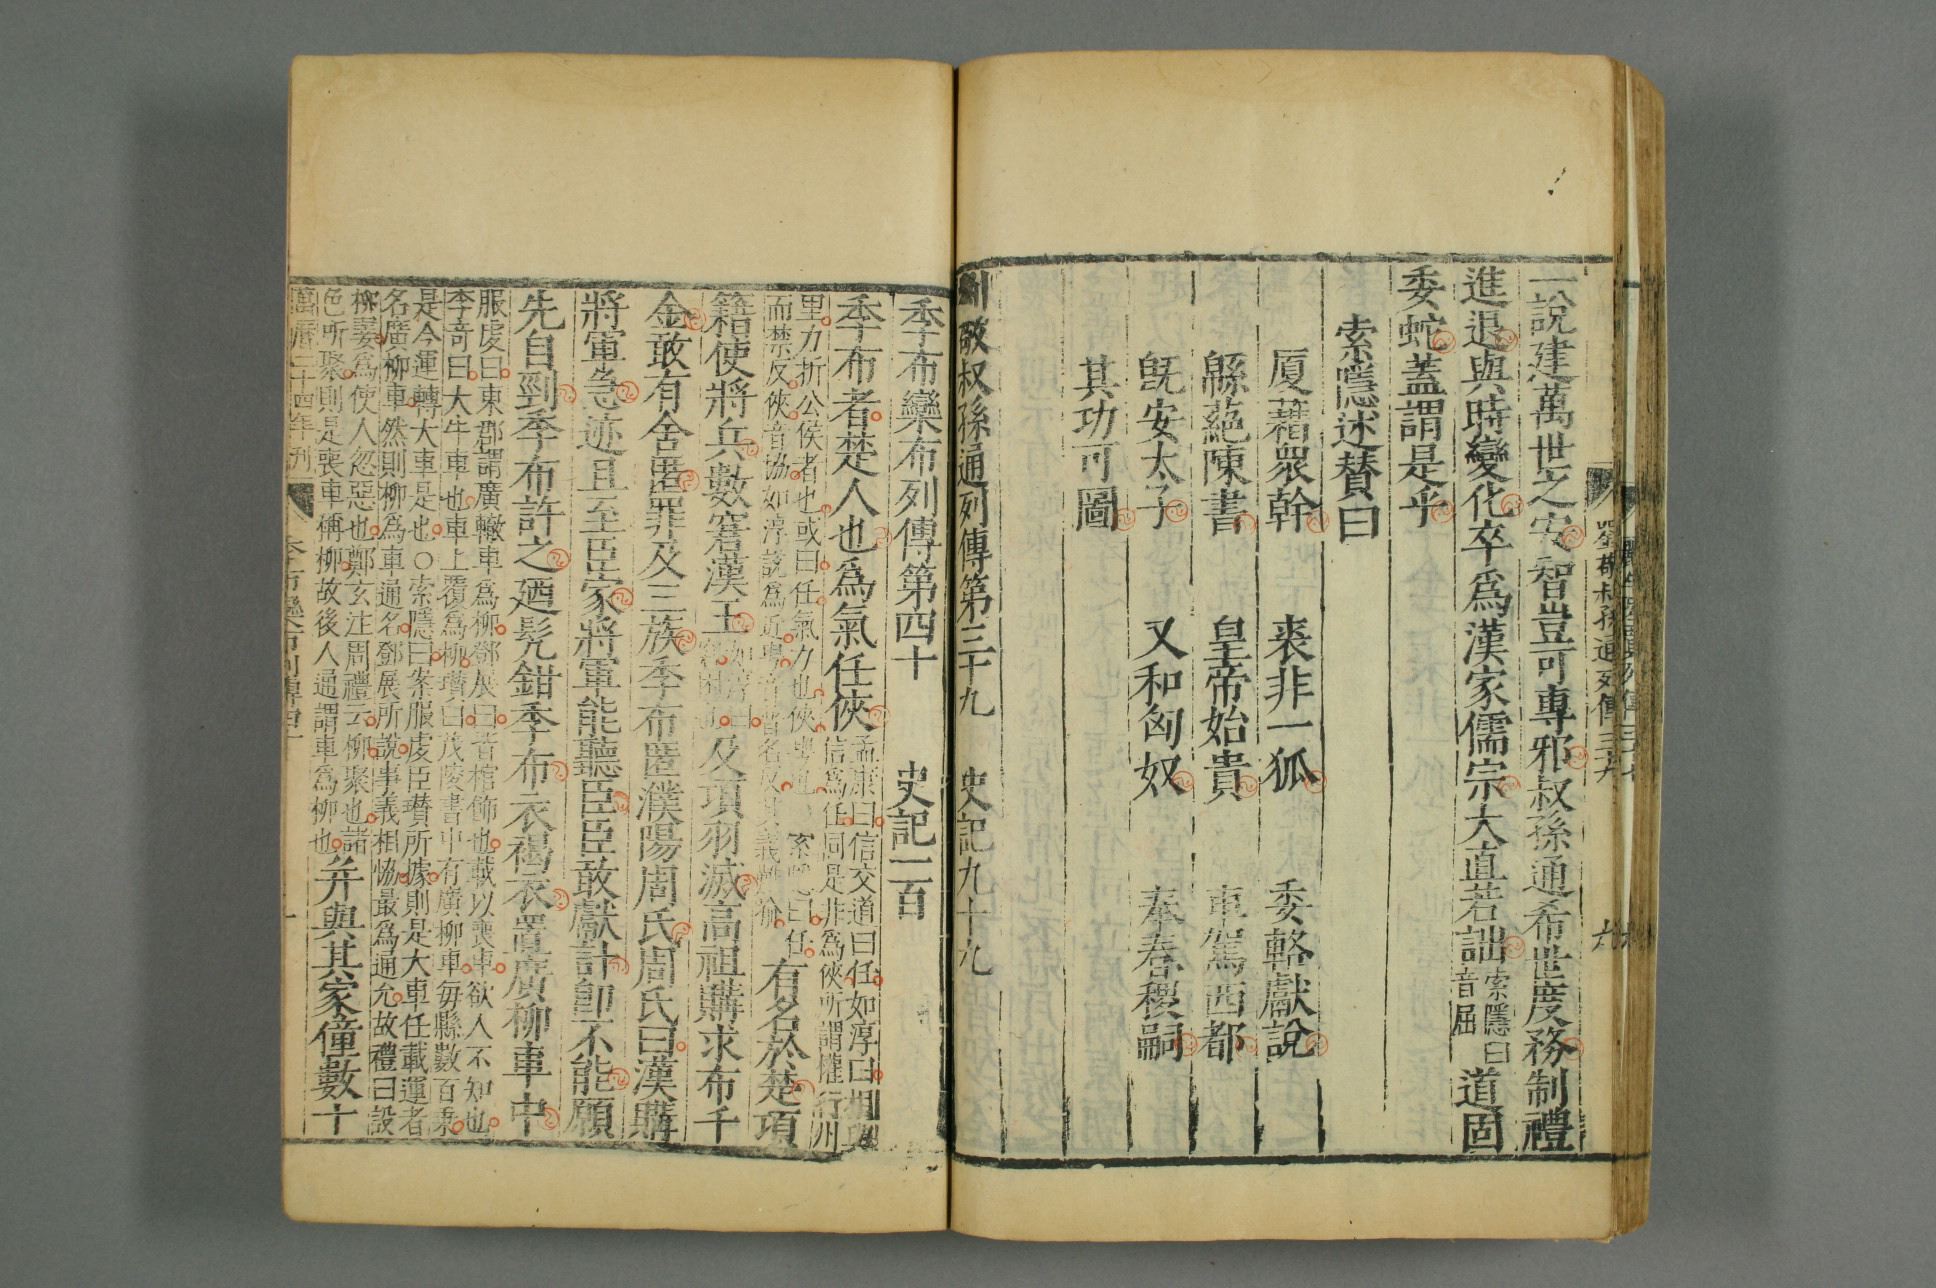 一說建萬世之安智豈可專邪叔孫通希世度務制禮
進退與時變化卒爲漢家儒宗大直若詘索隱曰音屈道固
委蛇蓋謂是乎
索隱述贊曰
厦藉衆幹 裘非一狐 委輅獻說
緜蕝陳書 皇帝始貴 車駕西都
旣安太子 又和匈奴 奉春稷嗣
其功可圖
劉敬叔孫通列傳第三十九 史記九十九
季布欒布列傳第四十 史記一百
季布者楚人也爲氣任俠孟康曰信交道曰任如淳曰相與
信爲任同是非爲俠所謂權行州
里力折公侯者也或曰任氣力也俠
而禁反俠音協如淳說爲近 有名於楚項
籍使將兵數窘漢王及項羽滅高祖購求布千
金敢有舍匿罪及三族季布匿濮陽周氏周氏曰漢購
將軍急迹且至臣家將軍能聽臣臣敢獻計卽不能願
先自剄季布許之廼髠鉗季布衣褐衣置廣柳車中
服虔曰東郡謂廣轍車爲柳鄧展曰皆棺飾也載以喪車欲人不知也
李奇曰大牛車也車上覆爲柳瓚曰茂陵書中有廣柳車每縣數百乘
是今運轉大車是也○索隱曰案服虔臣瓚所據則是大車任載運者
名廣柳車然則柳爲車通名鄧展所說事義相協最爲通允故禮曰設
柳翣爲使人勿惡也鄭玄注周禮云柳聚也諸
色所聚則是喪車稱柳故後人通謂車爲柳也幷與其家僮數十
萬曆二十四年刊 季布欒布列傳四十 一